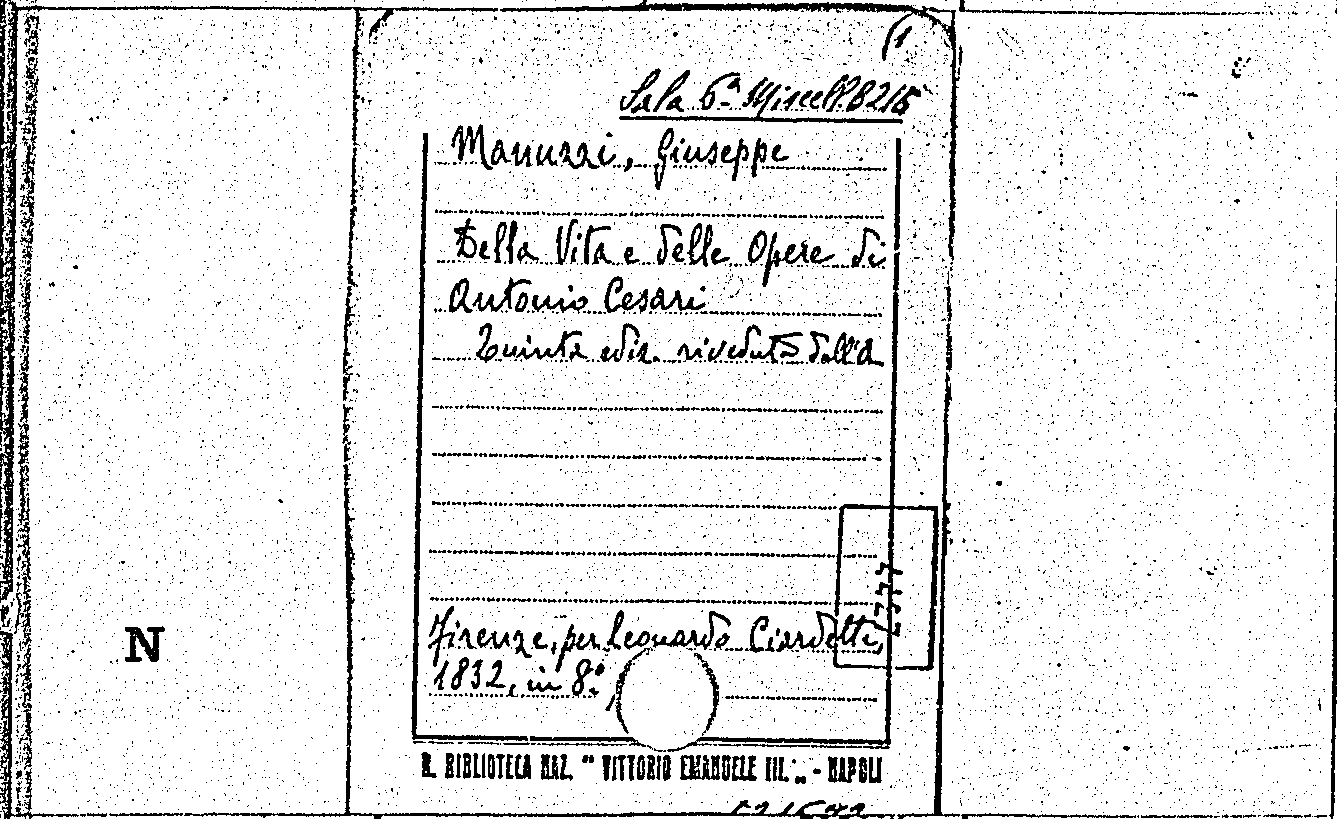 (1
Sala 6ª Miscell. B 216
Manuzzi, Giuseppe
Della Vita e delle Opere di
Antonio Cesari
Quinta ediz. riveduta dall'A
Firenze, per Leonardo Ciardetti,
1832, in 8º,
N
R. BIBLIOTECA NAZ. " VITTORIO EMANUELE III. „ - NAPOLI